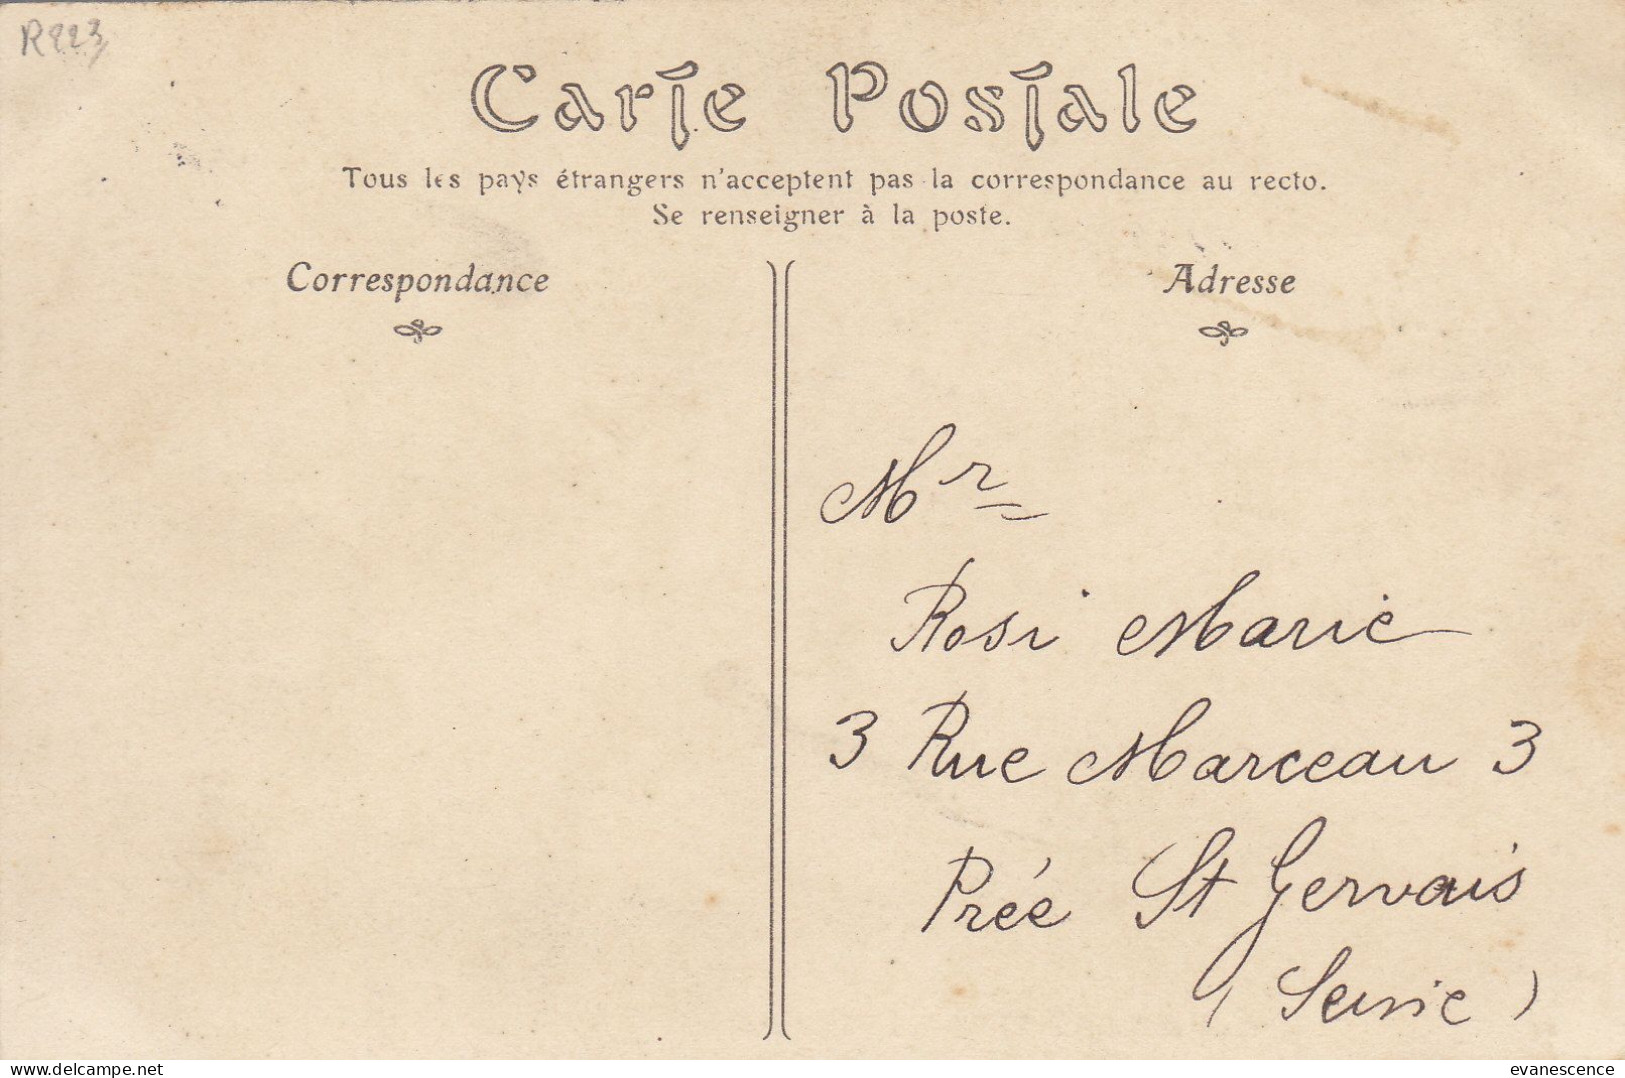 R223
Carte Postale
Tous les pays étrangers n'acceptent pas la correspondance au recto.
Se renseigner à la poste.
Correspondance
Adresse
Mr
Rosi Marie
3 Rue Marceau 3
Prée St Gervais
(Seine)
delcampe.net
evanescence